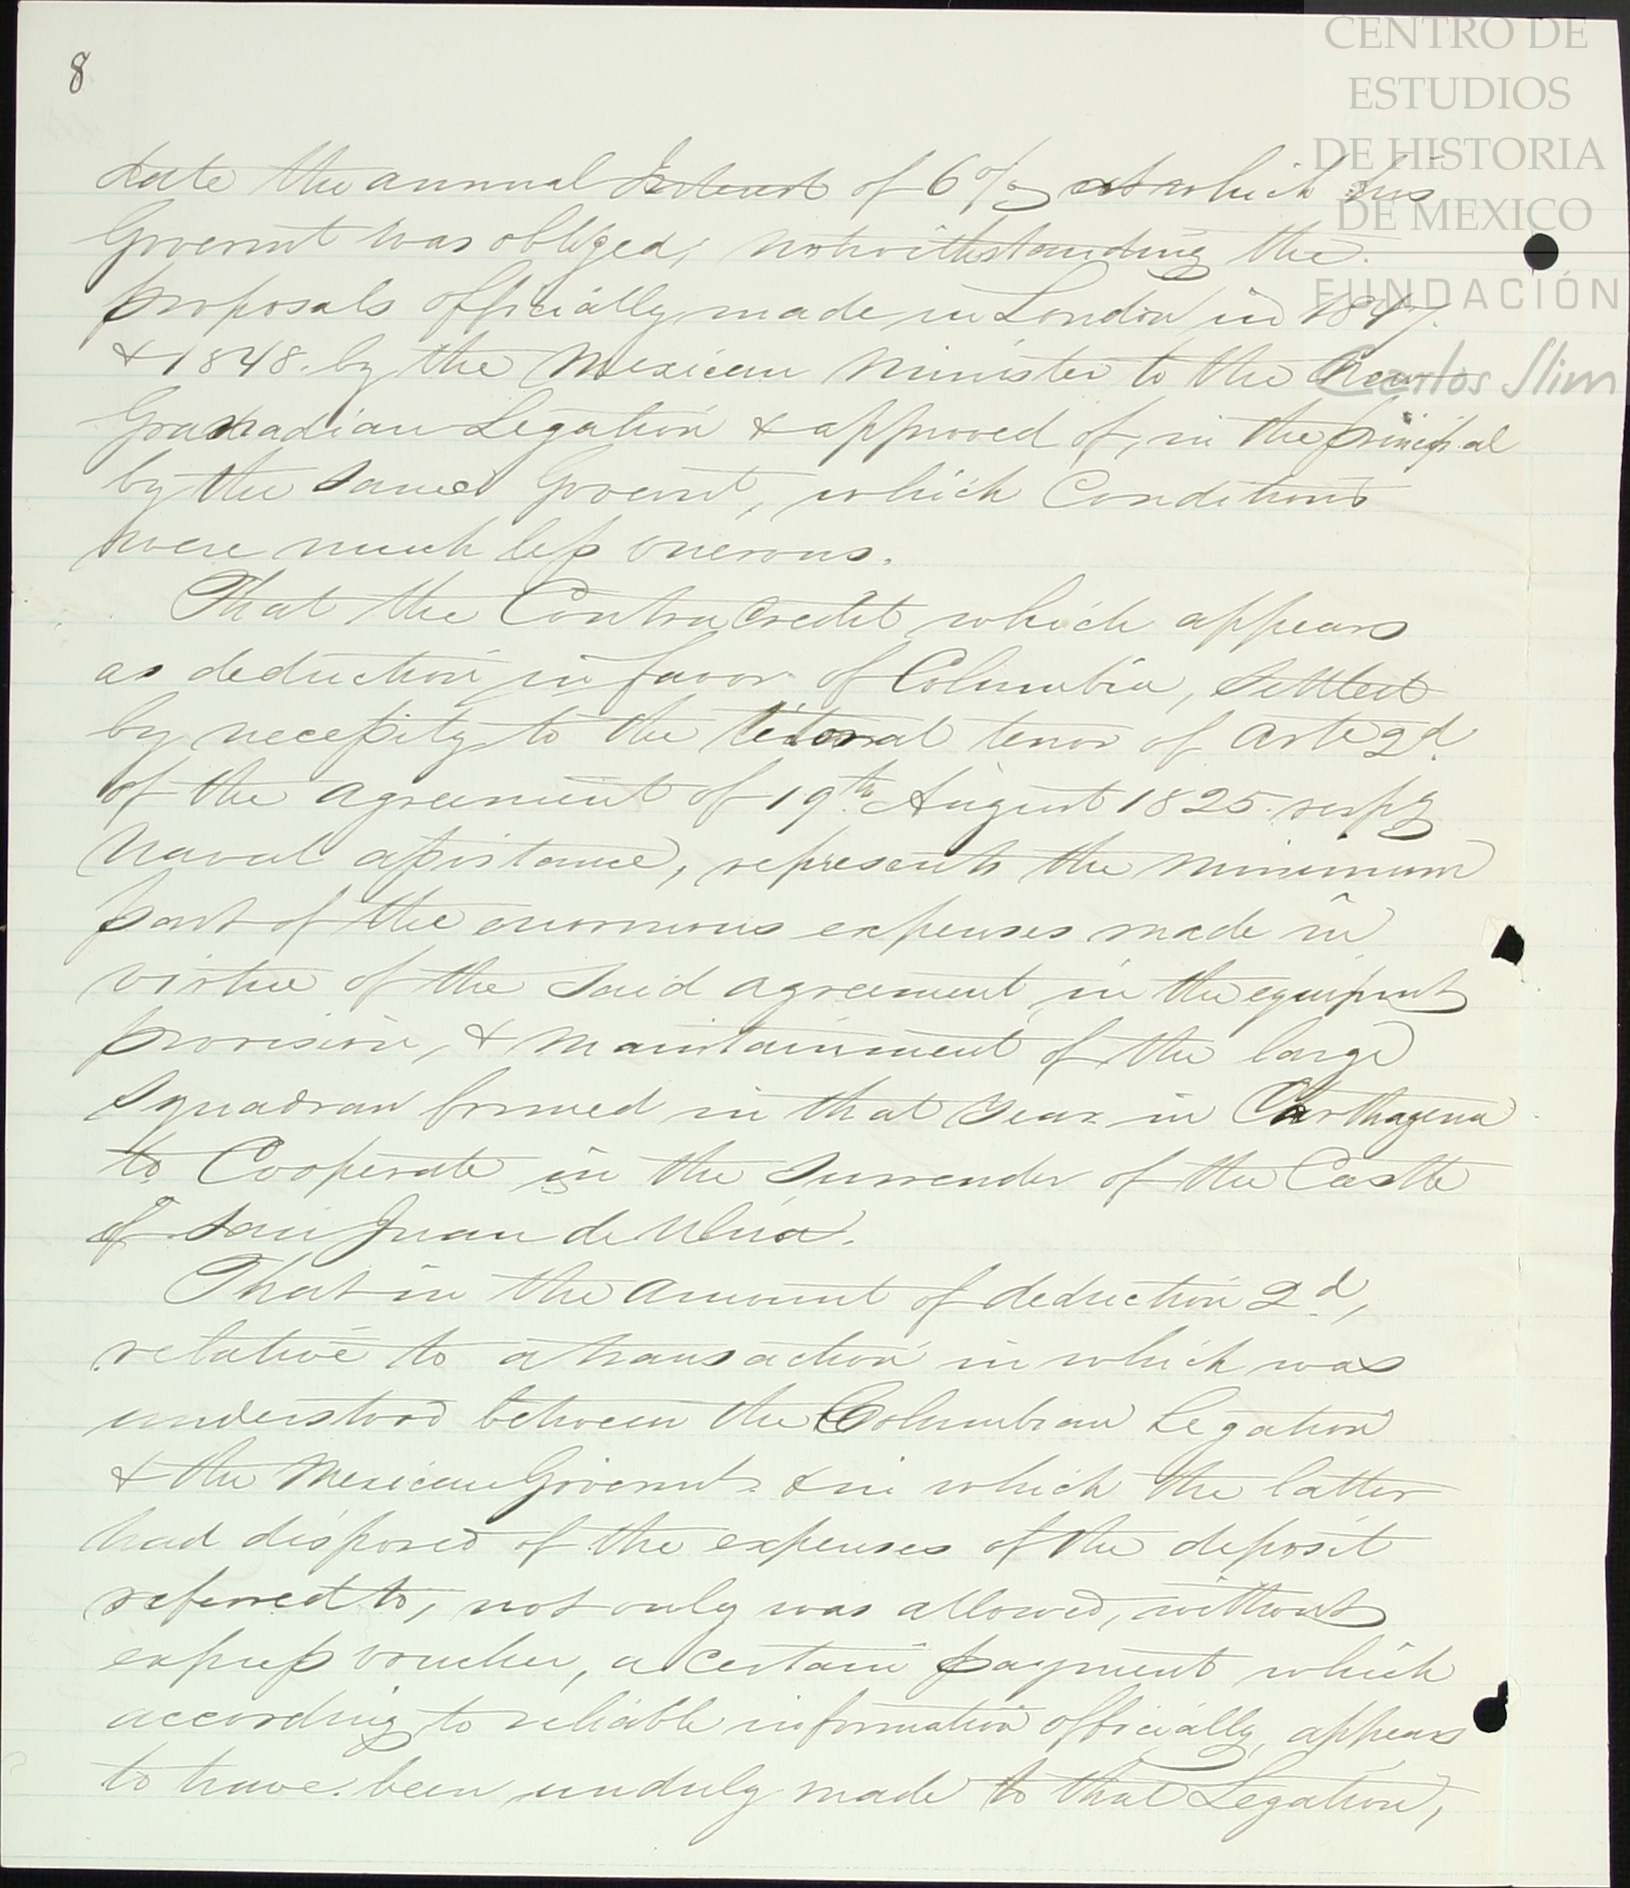 8
CENTRO DE
ESTUDIOS
DE HISTORIA
DE MEXICO
FUNDACIÓN
Carlos Slim
date the annual Interest of 6% at which his
Govermt was obliged; notwithstanding the
proposals officially made in London in 1847.
& 1848. by the Mexican Minister to the New
Granadian Legation & approved of, in the principal
by the same Govermt, which Conditions
were much less onerous.
That the Contra Credit which appears
as deduction in favor of Columbia, settled
by necessity to the literal tenor of Arte 2d.
of the agreement of 19th August 1825. respg
Naval assistance, represents the minimum
part of the enormous expenses made in
virtue of the said agreement in the equipmt
provision, & maintainment of the large
Squadron formed in that Year in Carthagena
to Cooperate in the Surrender of the Castle
of San Juan de Ulua.
That in the amount of deduction 2d,
relative to a transaction in which was
understood between the Columbian Legation
& the Mexican Goverment & in which the latter
had disposed of the expenses of the deposit
referred to, not only was allowed, without
express voucher, a certain payment which
according to reliable information officially, appears
to have been unduly made to that Legation,